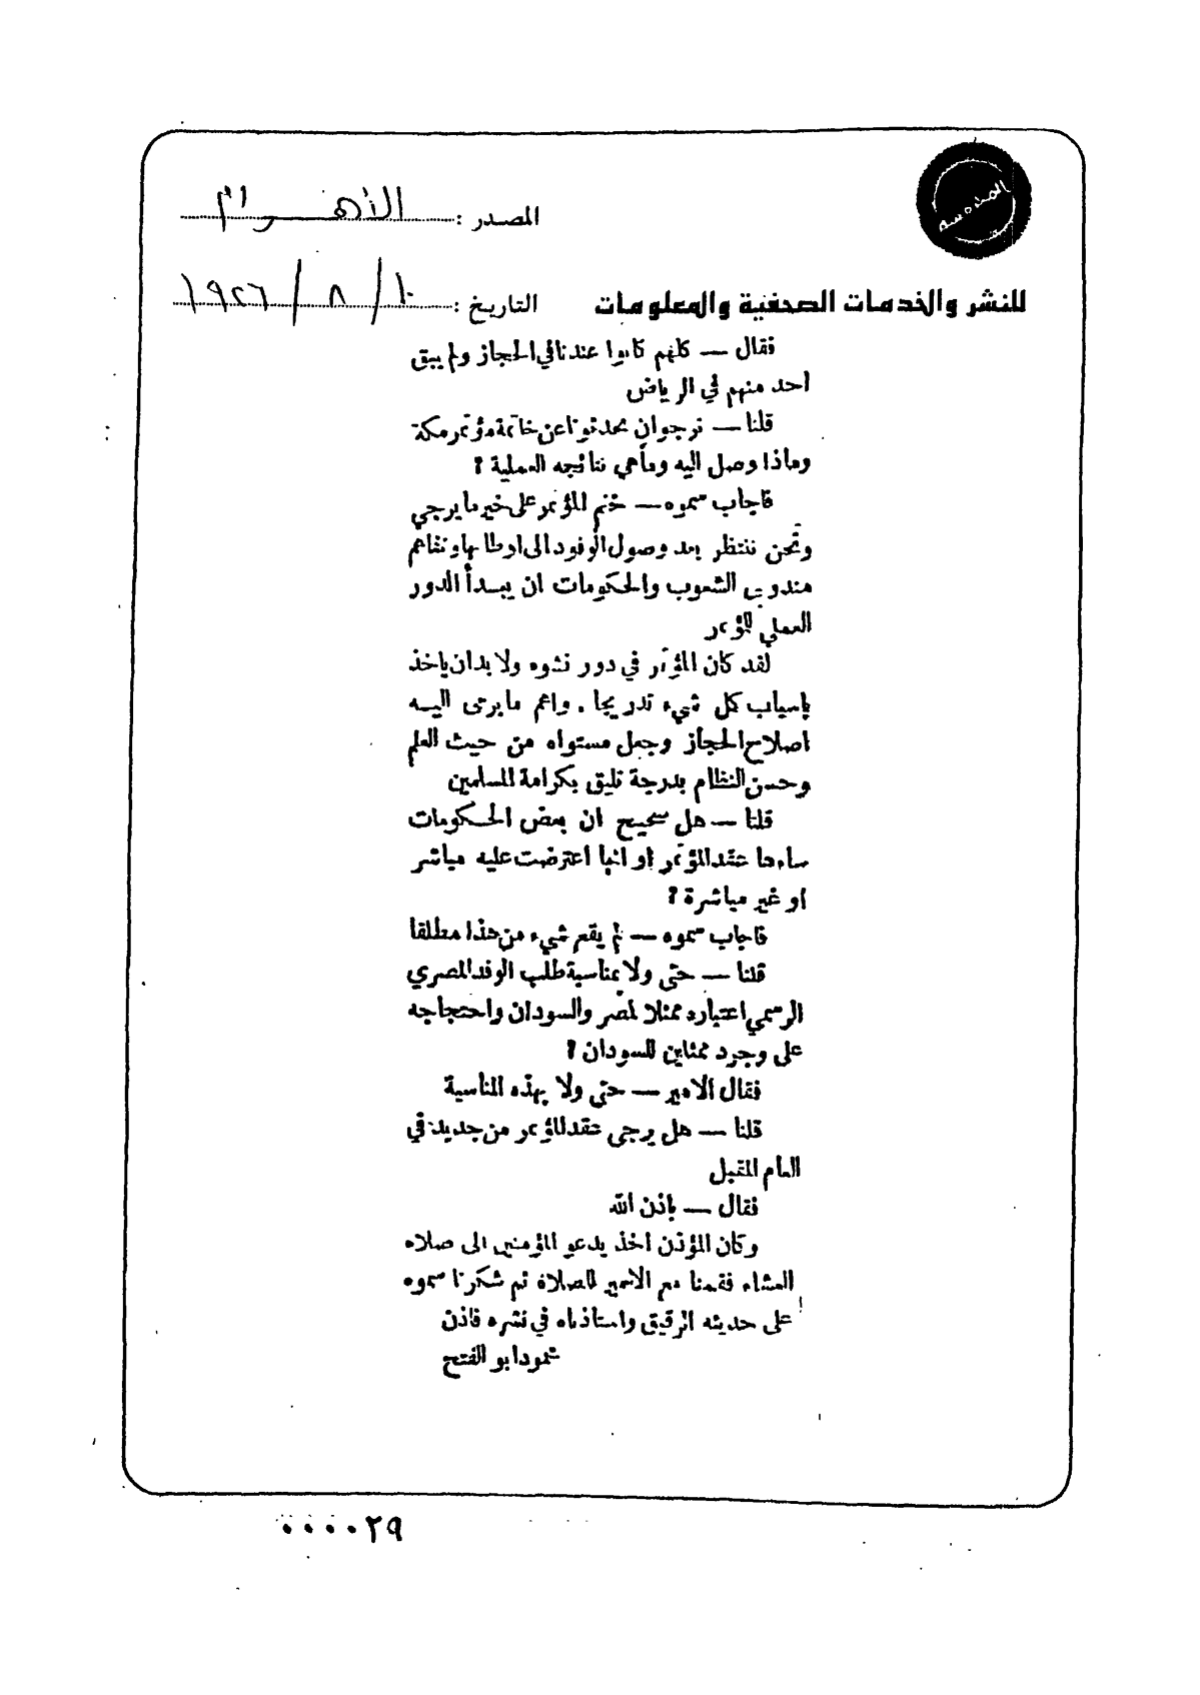 المصدر : الأهرام
التاريخ : ١٠ / ٨ / ١٩٢٦
للنشر والخدمات الصحفية والمعلومات
فقال — كلهم كانوا عندنا في الحجاز ولم يبق
احد منهم في الرياض
قلنا — نرجو ان تحدثونا عن خاتمة مؤتمر مكة
وماذا وصل اليه وماهي نتائجه العملية ؟
فاجاب سموه — ختم المؤتمر على خير ما يرجي
ونحن ننتظر بعد وصول الوفود الى اوطانها وتفاهم
مندوبي الشعوب والحكومات ان يبدأ الدور
العملي للمؤتمر
لقد كان المؤتمر في دور نشوه ولا بد ان ياخذ
باسباب كل شيء تدريجا . واهم ما يرمى اليه
اصلاح الحجاز وجعل مستواه من حيث العلم
وحسن النظام بدرجة تليق بكرامة المسلمين
قلنا — هل صحيح ان بعض الحكومات
ساءها عقد المؤتمر او انها اعترضت عليه مباشر
او غير مباشرة ؟
فاجاب سموه — لم يقع شيء من هذا مطلقا
قلنا — حتى ولا بمناسبة طلب الوفد المصري
الرسمي اعتباره ممثلا لمصر والسودان واحتجاجه
على وجود ممثلين للسودان ؟
فقال الامير — حتى ولا بهذه المناسبة
قلنا — هل يرجى عقد المؤتمر من جديد في
العام المقبل
فقال — باذن الله
وكان المؤذن اخذ يدعو المؤمنين الى صلاه
العشاء فقمنا مع الامير للصلاة ثم شكرنا سموه
على حديثه الرقيق واستاذناه في نشره فاذن
محمود ابو الفتح
٠٠٠٠٢٩